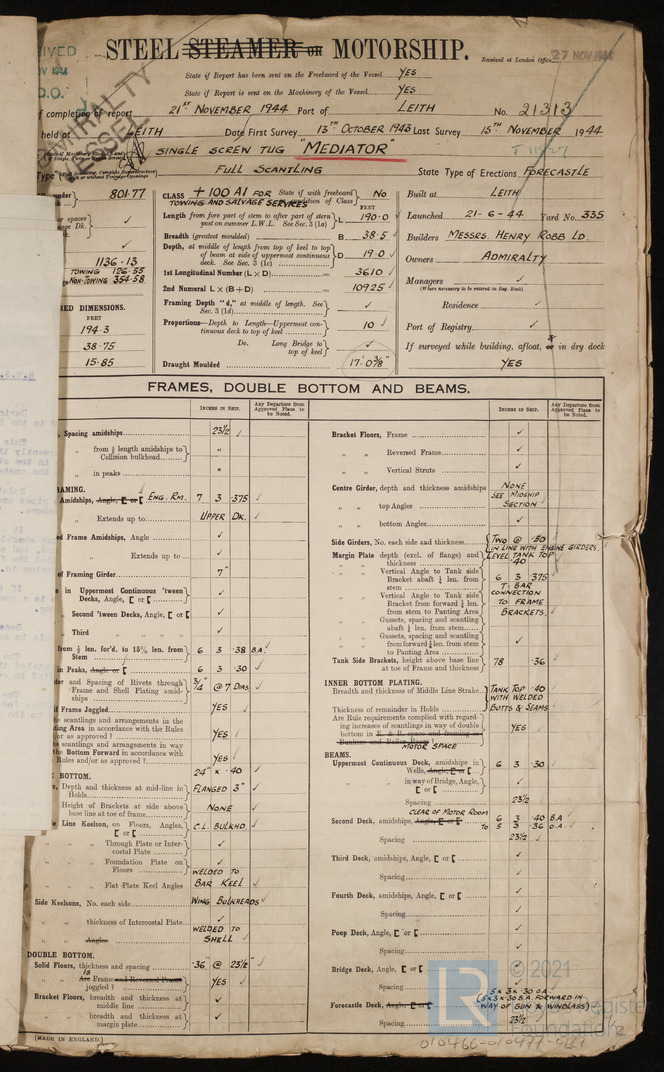 STEEL STEAMER OR MOTORSHIP.
Received at London Office 27 NOV 1944
NOV 1944
D.O.
ADMIRALTY VESSEL
State if Report has been sent on the Freeboard of the Vessel YES
State if Report is sent on the Machinery of the Vessel YES
of completion of report 21ST NOVEMBER 1944 Port of LEITH No. 21313
held at LEITH Date First Survey 13TH OCTOBER 1943 Last Survey 15TH NOVEMBER 1944
SINGLE SCREW TUG "MEDIATOR"
FULL SCANTLING State Type of Erections FORECASTLE
801.77
1136.13
TOWING 126.55
NON-TOWING 354.58
RED DIMENSIONS.
FEET
194.3
38.75
15.85
CLASS + 100 A1 FOR State if with freeboard condition of Class No
TOWING AND SALVAGE SERVICES
FEET
Length from fore part of stem to after part of stern post on summer L.W.L. See Sec. 3 (1a) L 190.0
Breadth (greatest moulded) B 38.5
Depth, at middle of length from top of keel to top of beam at side of uppermost continuous deck. See Sec. 3 (1c) D 19.0
1st Longitudinal Number (L × D) 3610
2nd Numeral L × (B + D) 10925
Framing Depth "d," at middle of length. See Sec. 3 (1d) ✓
Proportions—Depth to Length—Uppermost continuous deck to top of keel 10 ✓
Do. Long Bridge to top of keel ✓
Draught Moulded 17'-0 3/8"
Built at LEITH
Launched 21-6-44 Yard No. 335
Builders MESSRS. HENRY ROBB LD
Owners ADMIRALTY
Managers ✓
(Where necessary to be entered in Reg. Book)
Residence ✓
Port of Registry ✓
If surveyed while building, afloat, or in dry dock
YES
FRAMES, DOUBLE BOTTOM AND BEAMS.
INCHES IN SHIP.
Any Departure from Approved Plans to be Noted.
INCHES IN SHIP.
Any Departure from Approved Plans to be Noted.
, Spacing amidships 23½ ✓
" from ⅗ length amidships to Collision bulkhead "
" in peaks "
RAMING.
Amidships, Angle, [ or [ ENG. RM. 7 3 .375 ✓
" Extends up to UPPER DK.
ed Frame Amidships, Angle ✓
" " Extends up to ✓
of Framing Girder 7"
in Uppermost Continuous 'tween Decks, Angle, [ or [ ✓
" Second 'tween Decks, Angle, [ or [ ✓
" Third " " " ✓
from ⅕ len. for'd. to 15% len. from Stem 6 3 .38 B.A. ✓
in Peaks, Angle or [ 6 3 .30 ✓
ter and Spacing of Rivets through Frame and Shell Plating amidships 3/4" @ 7 DIAS ✓
if Frame Joggled YES ✓
he scantlings and arrangements in the ting Area in accordance with the Rules or as approved? YES ✓
he scantlings and arrangements in way the Bottom Forward in accordance with Rules and/or as approved? YES ✓
BOTTOM.
s, Depth and thickness at mid-line in Holds 24" x .40 FLANGED 3" ✓
Height of Brackets at side above base line at toe of frame NONE
Line Keelson, on Floors, Angles, [ or [ C.L. BULKHD
" " Through Plate or Intercostal Plate ✓
" " Foundation Plate on Floors ✓
" " Flat Plate Keel Angles WELDED TO BAR KEEL ✓
Side Keelsons, No. each side WING BULKHEADS
" " thickness of Intercostal Plate ✓
" " Angles WELDED TO SHELL ✓
DOUBLE BOTTOM.
Solid Floors, thickness and spacing .36 @ 23½" ✓
" IS Are Frame and Reversed Frame joggled? YES ✓
Bracket Floors, breadth and thickness at middle line ✓
" " breadth and thickness at margin plate ✓
(MADE IN ENGLAND.)
Bracket Floors, Frame ✓
" " Reversed Frame ✓
" " Vertical Struts ✓
Centre Girder, depth and thickness amidships NONE SEE MIDSHIP SECTION
" " top Angles
" " bottom Angles ✓
Side Girders, No. each side and thickness TWO @ .50 IN LINE WITH ENGINE GIRDERS
Margin Plate depth (excl. of flange) and thickness LEVEL TANK TOP .40
" " Vertical Angle to Tank side Bracket abaft ¼ len. from stem 6 3 .375
" " Vertical Angle to Tank side Bracket from forward ¼ len. from stem to Panting Area T. BAR CONNECTION TO FRAME BRACKETS.
" " Gussets, spacing and scantling abaft ¼ len. from stem ✓
" " Gussets, spacing and scantling from forward ¼ len. from stem to Panting Area ✓
Tank Side Brackets, height above base line at toe of Frame and thickness 78 .36
INNER BOTTOM PLATING.
Breadth and thickness of Middle Line Strake TANK TOP .40
Thickness of remainder in Holds WITH WELDED BUTTS & SEAMS
Are Rule requirements complied with regarding increases of scantlings in way of double bottom in E. & B. space and framing in Bunkers and Boiler Room? YES
MOTOR SPACE
BEAMS.
Uppermost Continuous Deck, amidships in Wells, Angle, [ or [ 6 3 .30
" " in way of Bridge, Angle, [ or [ ✓
Spacing 23½
CLEAR OF MOTOR ROOM
Second Deck, amidships, Angle, [ or [ 6 3 .40 B.A
TO 5 3 .36 O.A.
Spacing 23½
Third Deck, amidships, Angle, [ or [ ✓
Spacing ✓
Fourth Deck, amidships, Angle, [ or [ ✓
Spacing ✓
Poop Deck, Angle, [ or [ ✓
Spacing ✓
Bridge Deck, Angle, [ or [ ✓
Spacing ✓
Forecastle Deck, Angle, [ or [ 5 x 3 x .30 O.A. (5x3x.30 B.A. FORWARD IN WAY OF GUN & WINDLASS)
Spacing 23½
© 2021
LR
Foundation
010466-010477-0141